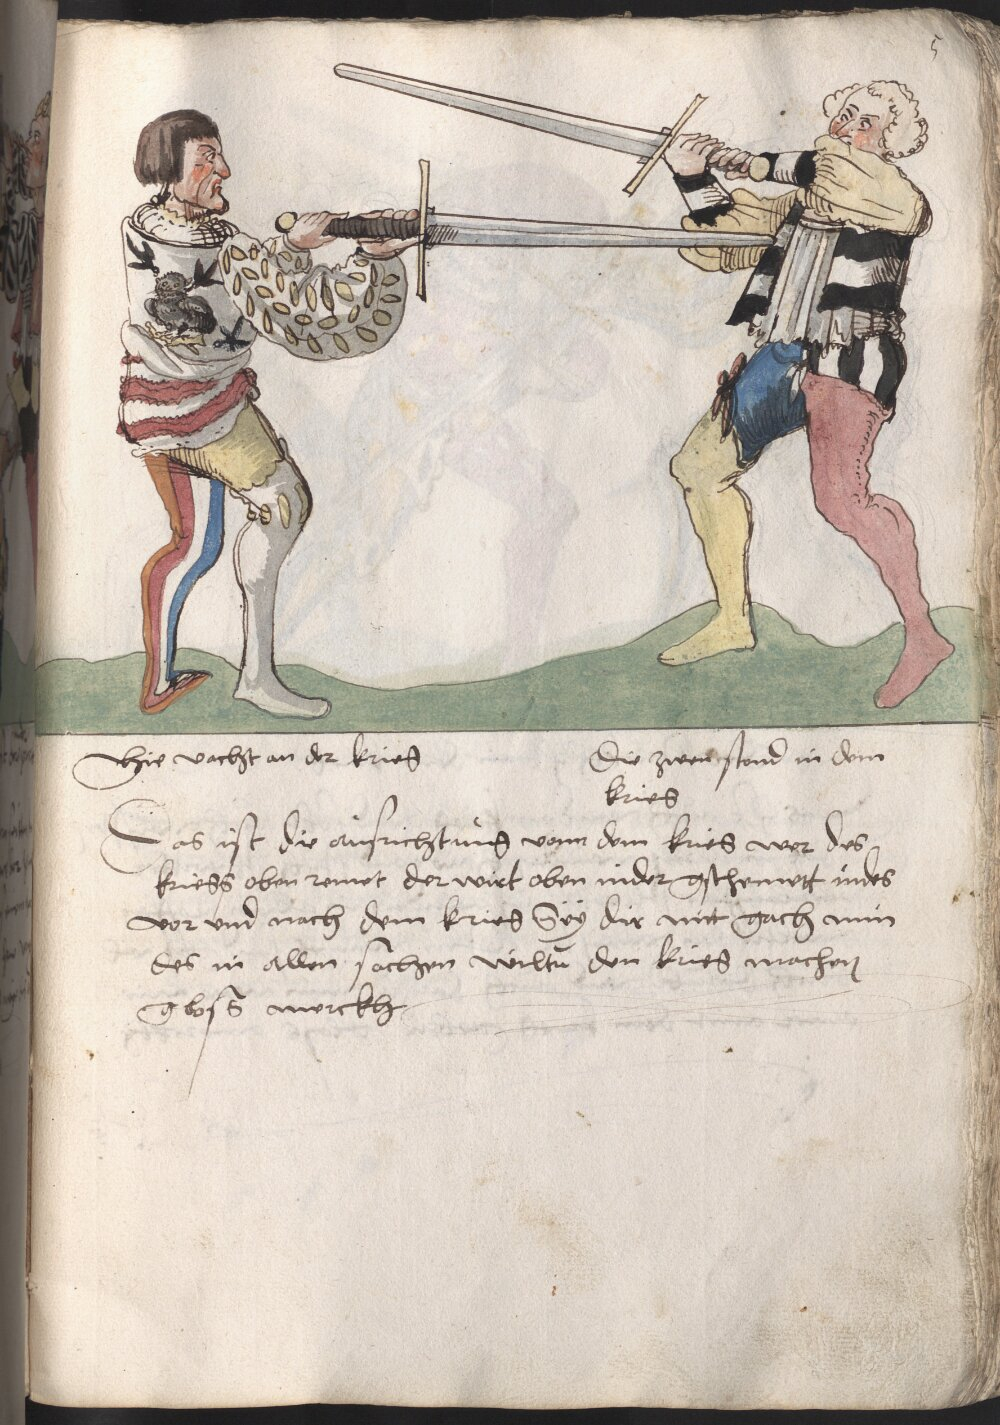 5
Hie vacht an der kries
Die zwen stond in dem
kries
Das ist die ausrichtung vonn dem kries wer des
kriess oben remet der wirt oben nider gschemett indes
vor und nach dem kries Sÿy dir nitt gach nim
des in allen sachen wiltu den kries machen
gloss merckh